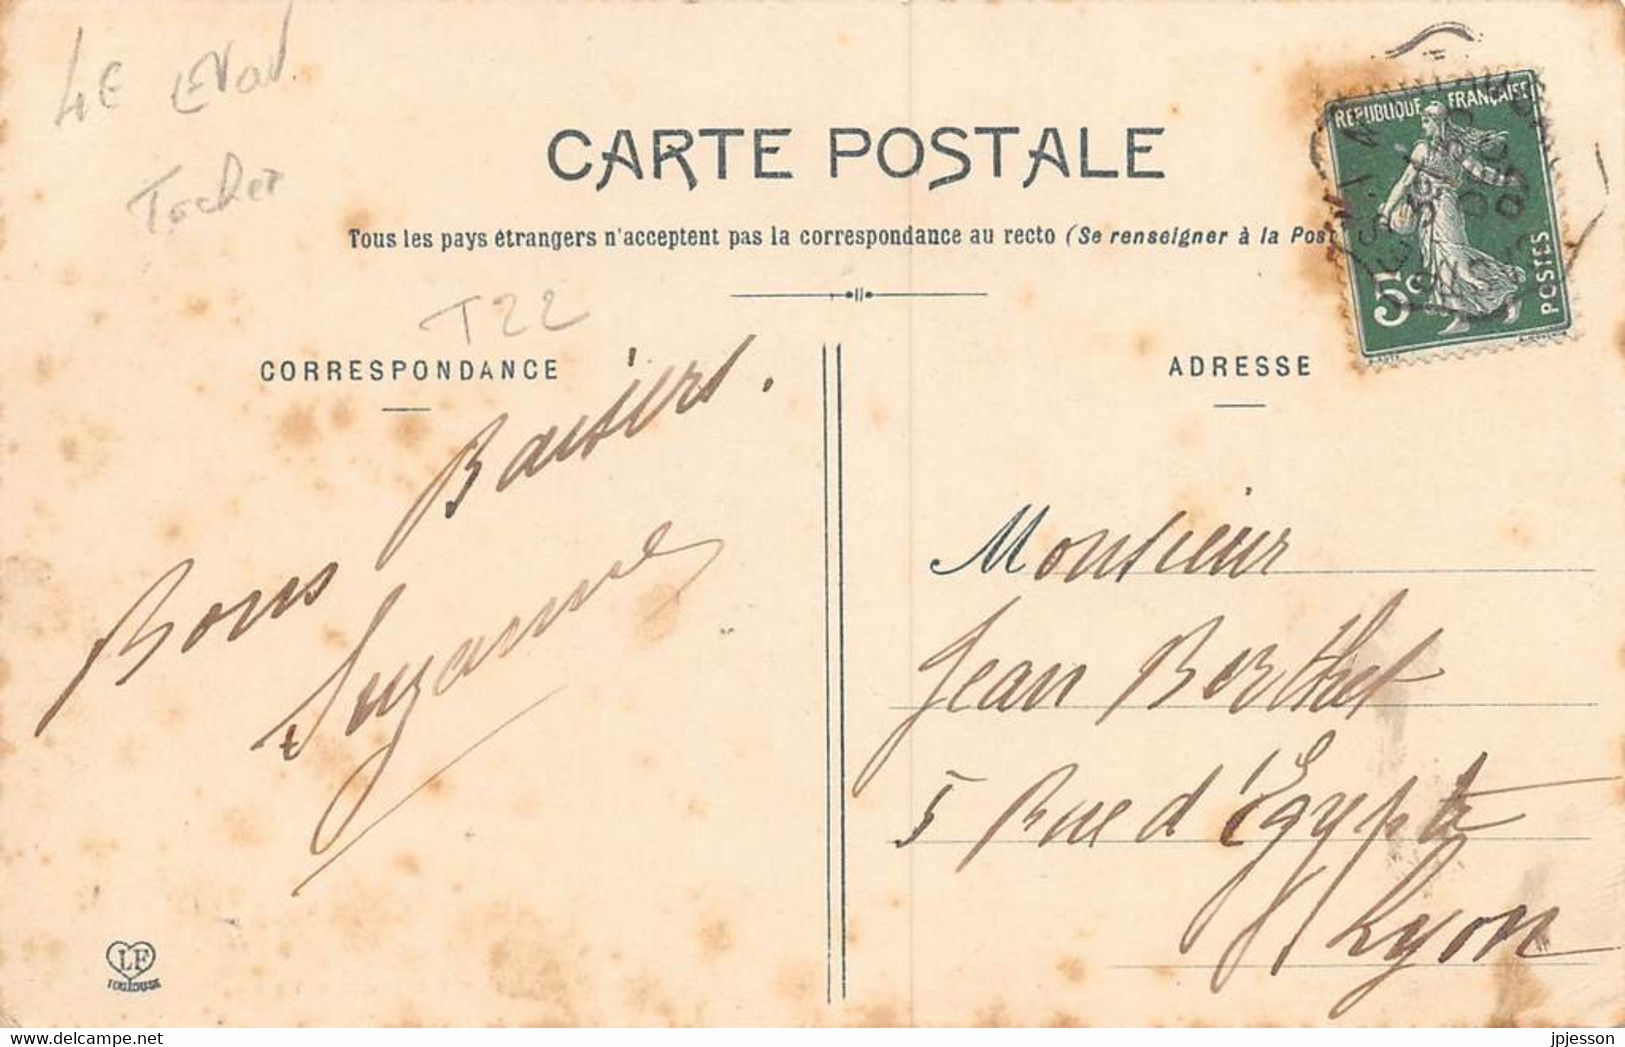 CARTE POSTALE
Tous les pays étrangers n'acceptent pas la correspondance au recto (Se renseigner à la Post
RÉPUBLIQUE FRANÇAISE
5c
POSTES
T22
CORRESPONDANCE
ADRESSE
Bons Baisers.
Suzanne
Monsieur
Jean Berthet
5 Rue d'Égypte
Lyon
LF
TOULOUSE
jpjesson